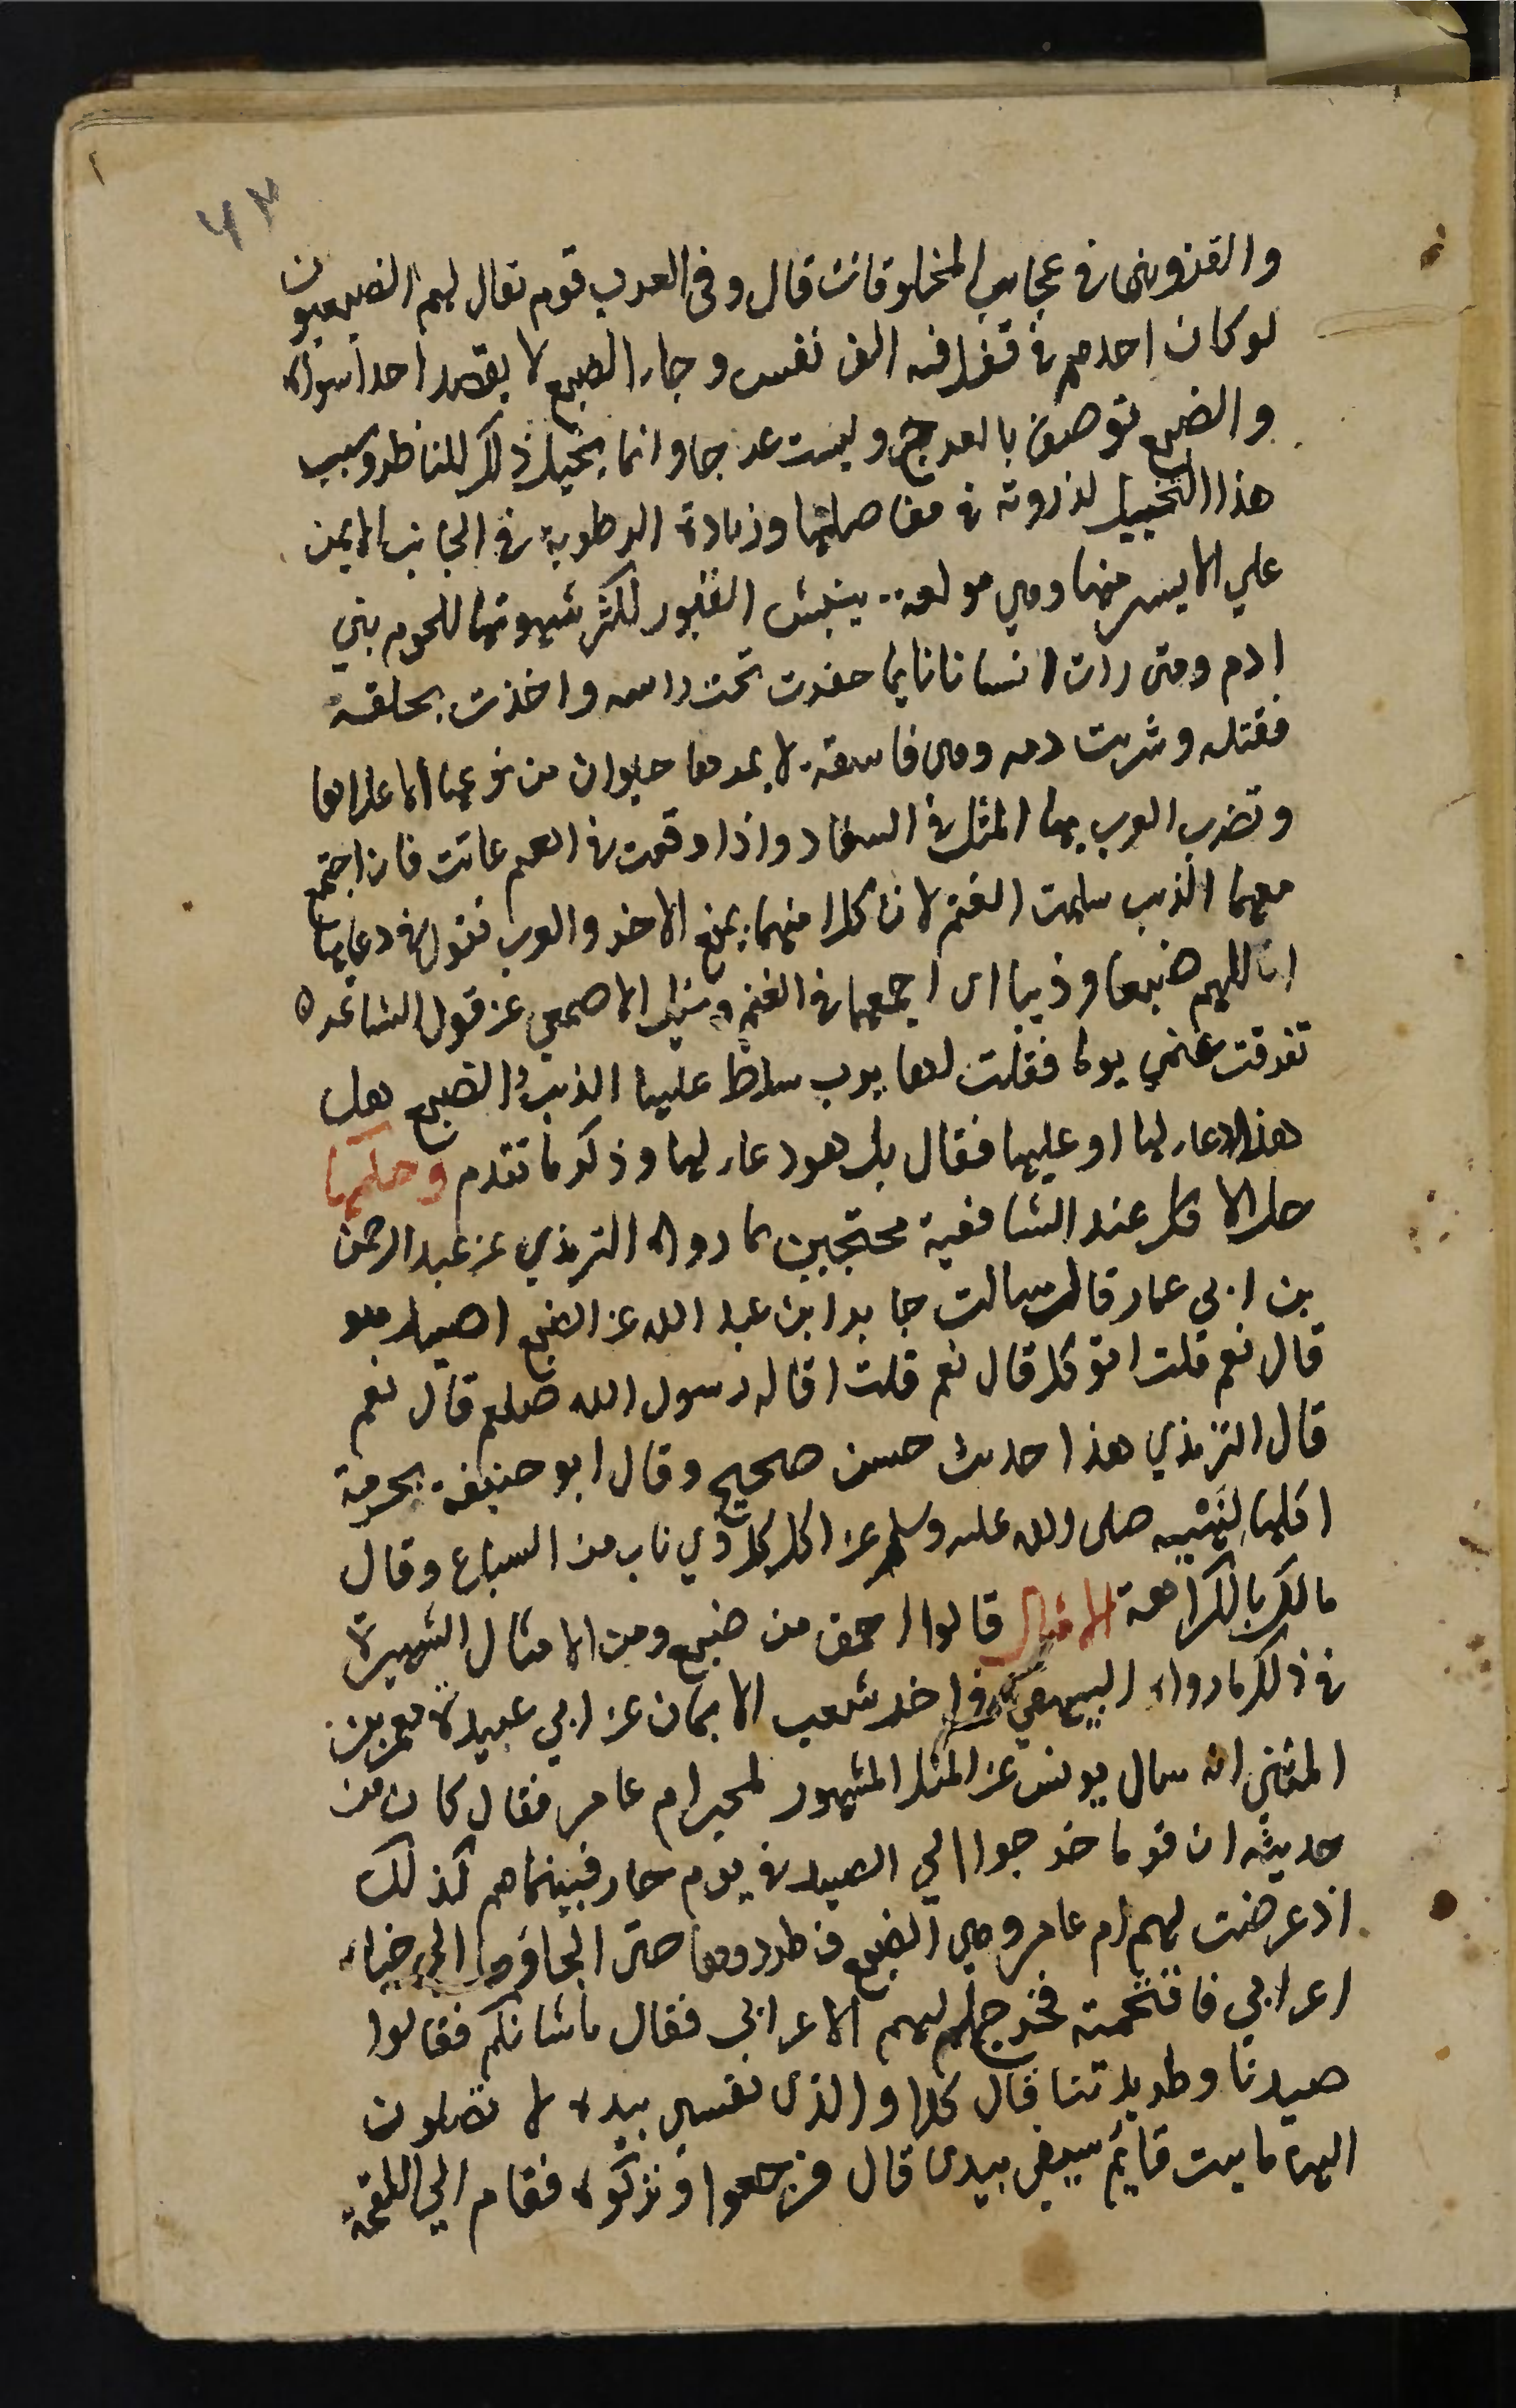 ٤٣
والقزويني في عجايب المخلوقات قال وفي العرب قوم تقال لهم الضبعيون
لو كان احدهم في قفل فيه الف نفس وجاء الضبع لا يقصد احداً سواه
والضبع توصف بالعرج وليست عرجا وانما يتخيل ذلك للناظر وسبب
هذا التخييل لذونة في مفاصلها وزيادة الرطوبة في الجانب الايمن
علي الايسر منها وهي مولعة بنبش القبور لكثر شهوتها للحوم بني
ادم ومتى رات انسانا نايما حفرت تحت راسه واخذت بحلقه
فقتله وشربت دمه وهي فاسقة لا يمر بها حيوان من نوعها الا علاها
وتضرب العرب بها المثل في الفساد واذا وقعت في الغنم عاثت فان اجتمع
معها الذيب سلمت الغنم لان كلا منهما يمنع الاخر والعرب تقول في دعايها
اللهم ضبعا وذيبا اي اجمعهما في الغنم وسيل الاصمعي عن قول الشاعر ه
تفرقت غنمي يوما فقلت لها يرب سلط عليها الذيب والضبع هل
هذا دعاء لها او عليها فقال بل هو دعاء لها وذكر ما تقدم وحكمها
حل الاكل عند الشافعية محتجين بما رواه الترمذي عن عبد الرحمن
بن ابي عمار قال سالت جابر ابن عبد الله عن الضبع اصيد هو
قال نعم قلت اتوكل قال نعم قلت اقاله رسول الله صلعم قال نعم
قال الترمذي هذا حديث حسن صحيح وقال ابو حنيفة بحرمة
اكلها لنهيه صلى الله عليه وسلم عن اكل كل ذي ناب من السباع وقال
مالك بالكراهة الامثال قالوا احمق من ضبع ومن الامثال الشهيرة
في ذلك ما رواه البيهقي في اخر شعب الايمان عن ابي عبيدة معمر بن
المثني انه سال يونس عن المثل المشهور لمجير ام عامر فقال كان من
حديثه ان قوما خرجوا الي الصيد في يوم حار فبينما هم كذلك
اذ عرضت لهم ام عامر وهي الضبع فطردوها حتى الجاؤها الي خباء
اعرابي فاقتحمته فخرج اليهم الاعرابي فقال ما شانكم فقالوا
صيدنا وطريدتنا قال كلا والذي نفسي بيده لا تصلون
اليها ما ثبت قايم سيفي بيدي قال فرجعوا وتركوه فقام الي اللقحة